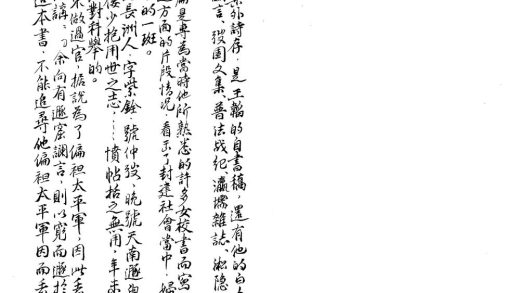 集外詩存，是王韜的自書稿，還有他的白
言、弢園文集、普法战纪、瀛壖雜誌、淞隐
編是專為當時他所熟悉的許多女校書而寫
方面的片段情况，看出了封建社會當中，婦
的一斑。
長洲人，字紫銓，號仲弢，晚號天南遯叟
少抱用世之志……憤帖括之無用，年未
對科舉的。
不做過官，据說為了偏袒太平軍，因此丢
謂：“余向有遯窟讕言，則以窮而遯於
本書，不能追尋他偏袒太平軍，因而丢